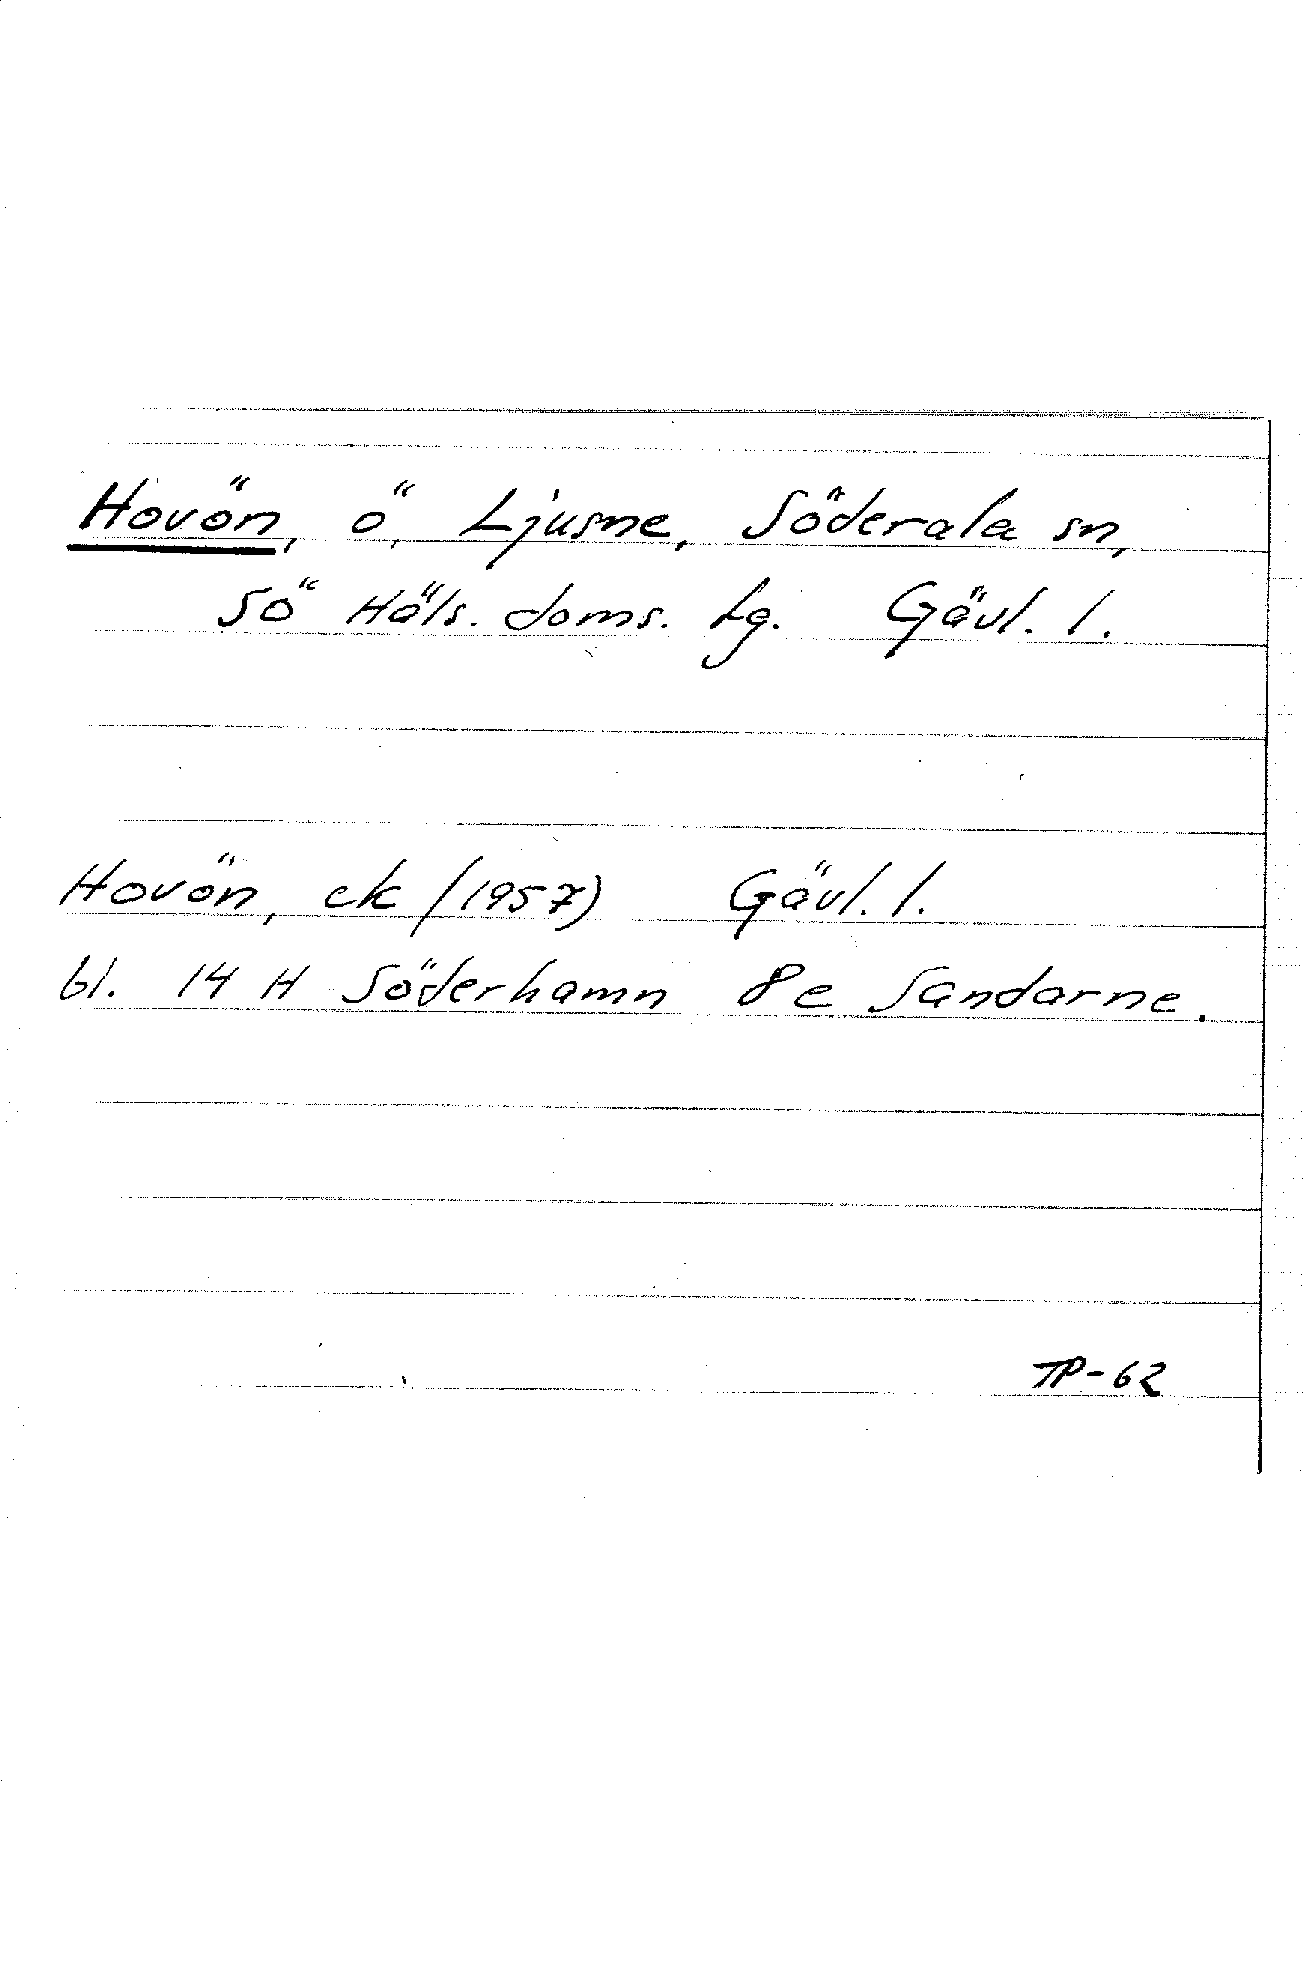 Hovön, ö, Ljusne, Söderala sn,
Sö Häls. doms. lg. Gävl. l.
Hovön, ek (1957) Gävl. l.
bl. 14 H Söderhamn 8e Sandarne.
TP-62